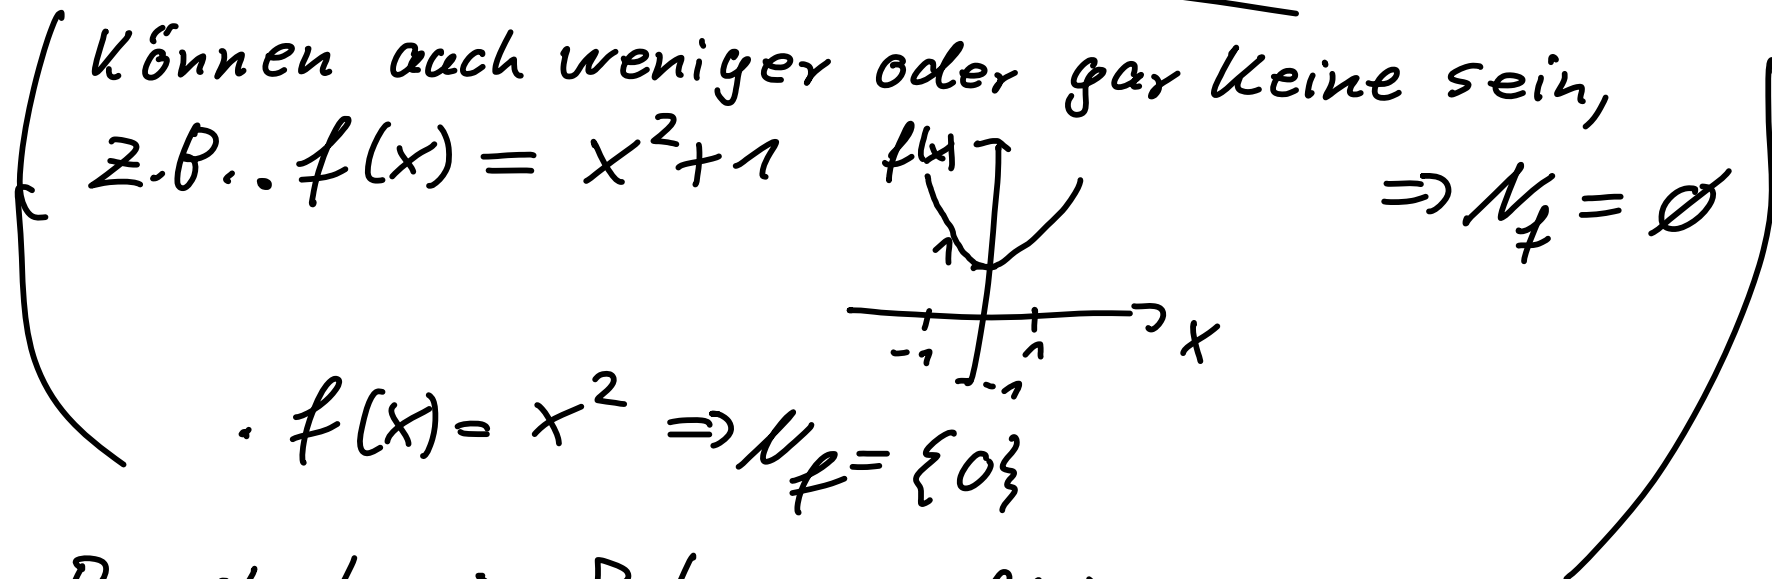 (Können auch weniger oder gar keine sein,
z.B. • f(x) = x²+1
f(x)
1
-1
1
x
-1
⇒ N_f = ∅
• f(x) = x² ⇒ N_f = {0} )